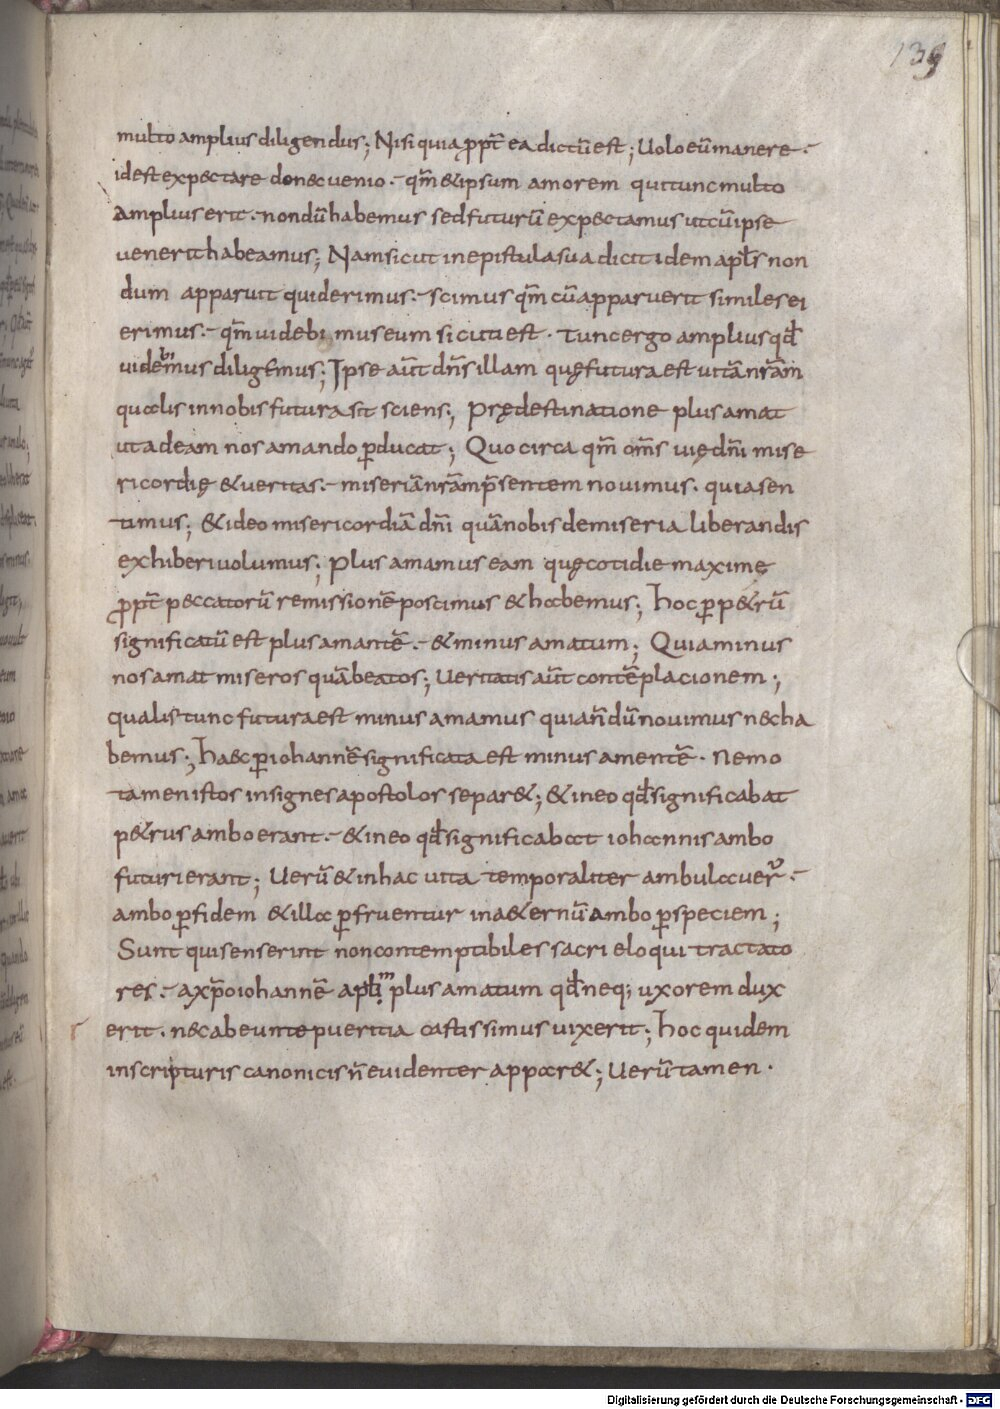 139
multo amplius diligendus; Nisi quia ꝓpt̄ ea dictū est; Uolo eū manere.
id est expectare donec uenio. qm̄ & ipsum amorem qui tunc multo
amplius erit. nondū habemus sed futurū expectamus ut cū ipse
uenerit habeamus; Nam sicut in epistula sua dicit idem apl̄s non
dum apparuit quid erimus. scimus qm̄ cū apparuerit similes ei
erimus. qm̄ uidebimus eum sicuti est. Tunc ergo amplius qd̄
uidemus diligemus; Ipse aūt dn̄s illam quę futura est uitā nr̄am
qualis in nobis futura sit sciens; Prędestinatione plus amat
ut ad eam nos amando ꝑducat; Quo circa qm̄ om̄s uię dn̄i mise
ricordię & ueritas. miseriā nr̄am p̄sentem nouimus. quia sen
timus; & ideo misericordiā dn̄i quā nobis de miseria liberandis
exhiberi uolumus; Plus amamus eam quę cotidie maximę
ꝓpt̄ peccatorū remissionē poscimus & habemus; Hoc ꝑ p&rū
significatū est plus amantē. & minus amatum; Quia minus
nos amat miseros quā beatos; Ueritatis aūt contēplacionem;
qualis tunc futura est minus amamus quia n̄dū nouimus nec ha
bemus; Haec ꝑ iohannē significata est minus amentē. Nemo
tamen istos insignes apostolos separ&; & in eo qd̄ significabat
p&rus ambo erant. & in eo qd̄ significabat iohannis ambo
futuri erant; Uerū & in hac uita temporaliter ambulauer̄.
ambo ꝑ fidem & illa ꝑfruentur in a&ernū ambo ꝑ speciem;
Sunt qui senserint non contemptibiles sacri eloqui tractato
res. a xp̄o iohannē apl̄m plus amatum qd̄ neq; uxorem dux
erit. nec ab eunte pueritia castissimus uixerit; Hoc quidem
in scripturis canonicis n̄ euidenter appar&; Uerū tamen.
Digitalisierung gefördert durch die Deutsche Forschungsgemeinschaft - DFG